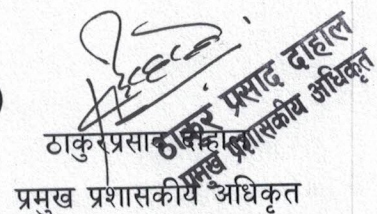 ठाकुर प्रसाद दाहाल
प्रमुख प्रशासकीय अधिकृत
ठाकुरप्रसाद दाहाल
प्रमुख प्रशासकीय अधिकृत